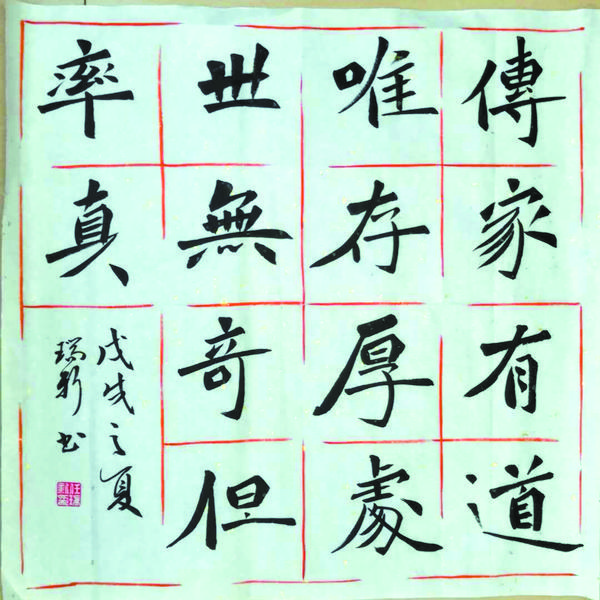 傳家有道
唯存厚處
世無奇但
率真
戊戌之夏
瑞新书